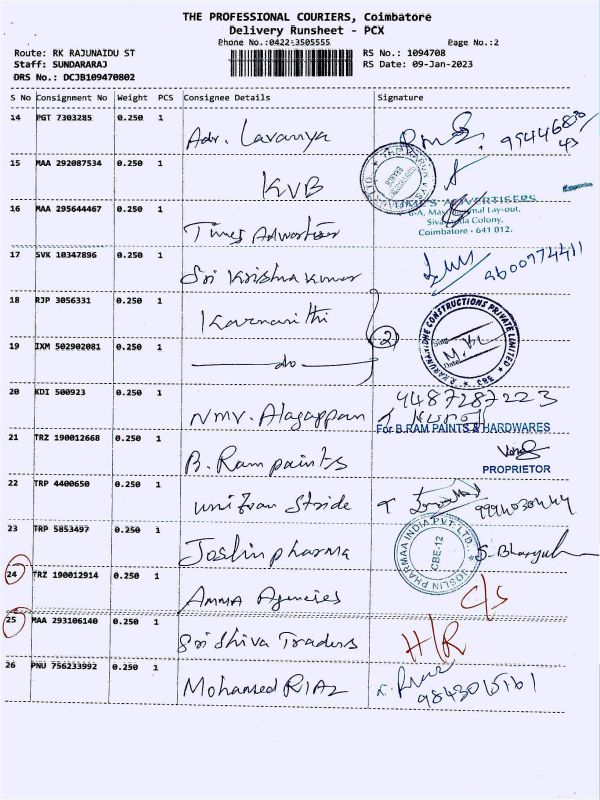 THE PROFESSIONAL COURIERS, Coimbatore
Delivery Runsheet - PCX
Phone No.:0422-3505555
Page No.:2
Route: RK RAJUNAIDU ST
RS No.: 1094708
Staff: SUNDARARAJ
RS Date: 09-Jan-2023
DRS No.: DCJB109470802
S No Consignment No Weight PCS Consignee Details Signature
14 PGT 7303285 0.250 1 Adv. Lavanya
15 MAA 292087534 0.250 1 KVB
16 MAA 295644467 0.250 1 Times Advertiser
TIMES ADVERTISERS
Lay-out,
Colony,
Coimbatore - 641 012.
17 SVK 10347896 0.250 1 Sri Krishna Kumar 9600974411
18 RJP 3056331 0.250 1 Karunanithi
2
R.KARUNAYIDHE CONSTRUCTIONS PRIVATE LIMITED
19 IXM 502902081 0.250 1 do
20 KDI 500923 0.250 1 NMV. Alagappan 9487287223
For B.RAM PAINTS & HARDWARES
21 TRZ 190012668 0.250 1 B. Ram paints
PROPRIETOR
22 TRP 4400650 0.250 1 Stride
23 TRP 5853497 0.250 1 Joslin pharma
JOSLIN PHARMAA INDIA PVT. LTD.
CBE-12
24 TRZ 190012914 0.250 1 AMMA Agencies C/S
25 MAA 293106140 0.250 1 Sri Shiva Traders H/R
26 PNU 756233992 0.250 1 Mohamed RIAZ